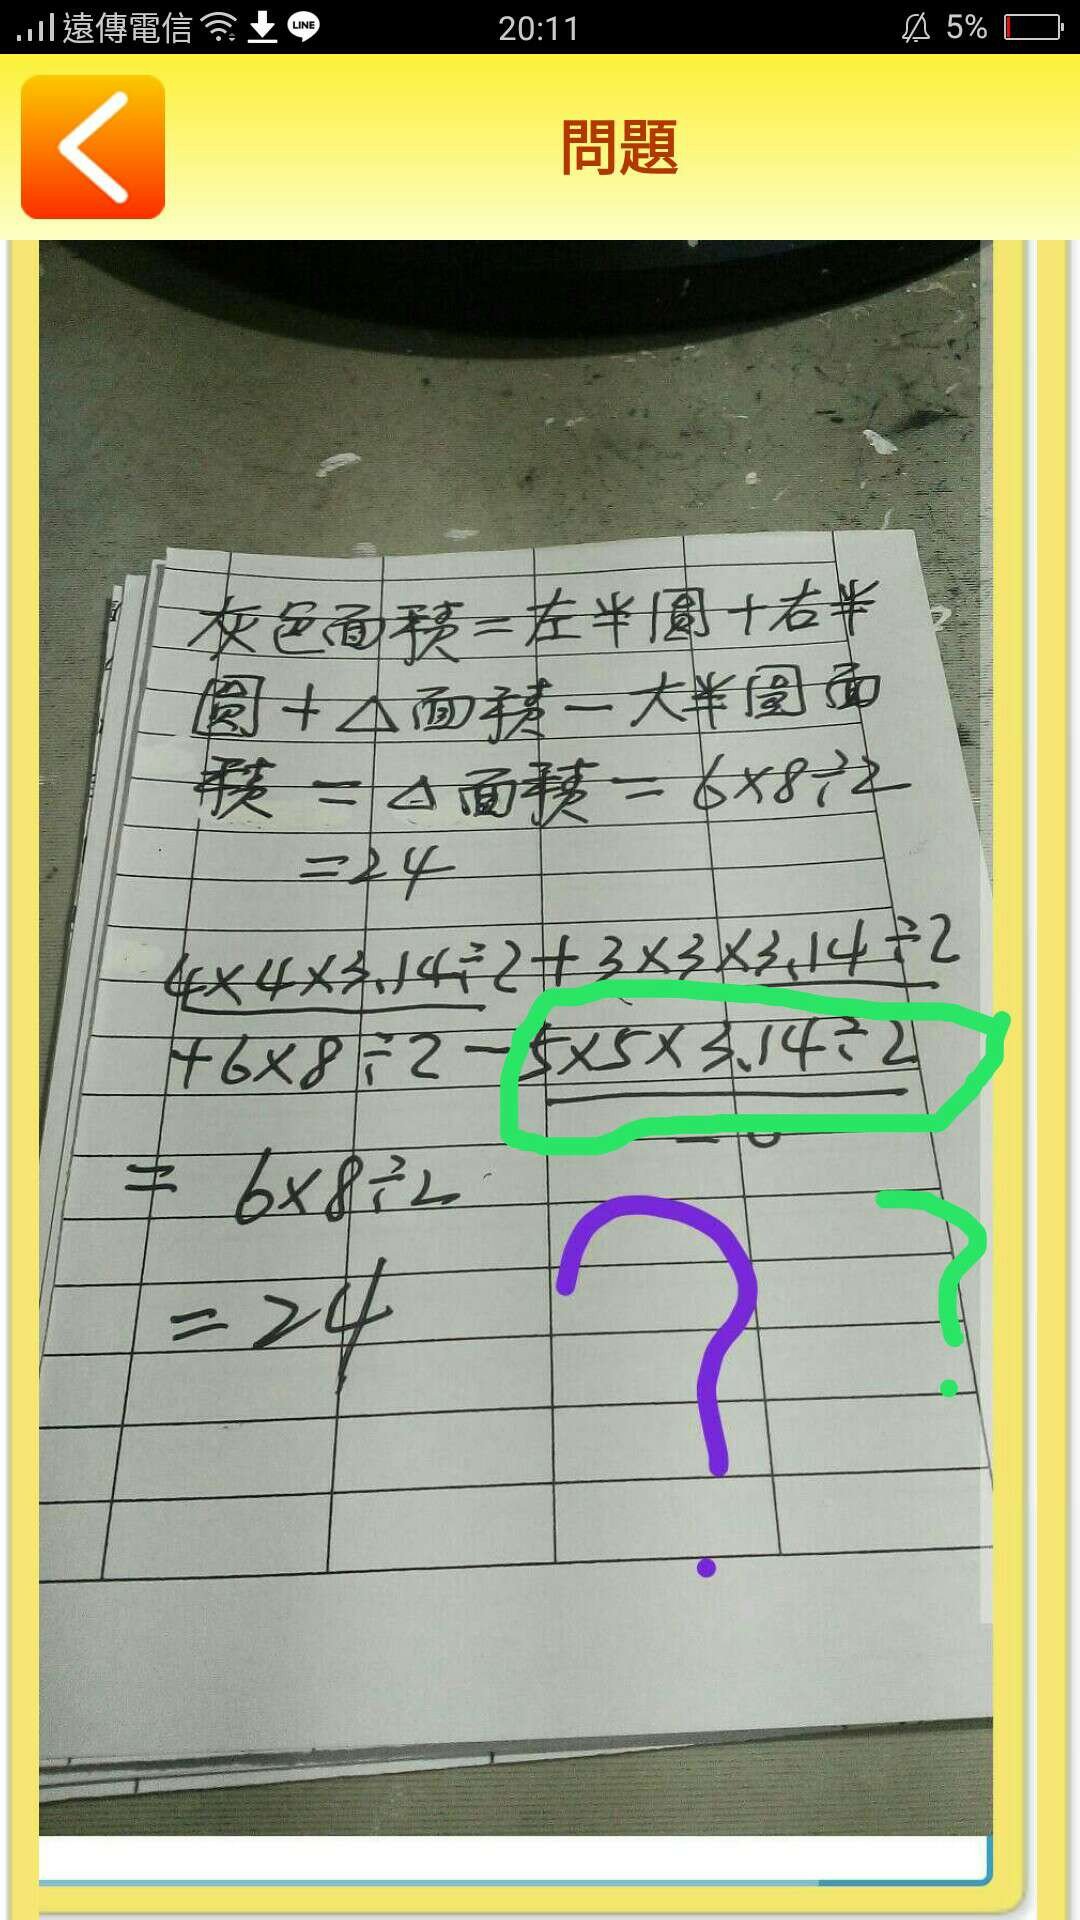 遠傳電信
LINE
20:11
5%
問題
灰色面積=左半圓+右半
圓+△面積-大半圓面
積=△面積=6×8÷2
=24
4×4×3.14÷2+3×3×3.14÷2
+6×8÷2-5×5×3.14÷2
=0
= 6×8÷2
=24
?
?